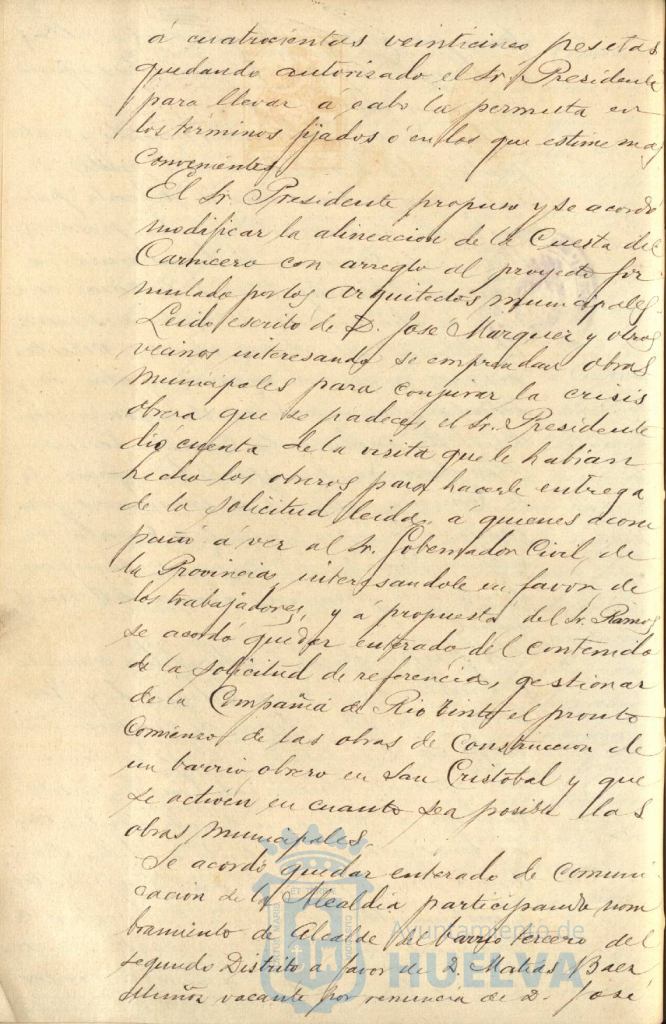 á cuatrocientas veinticinco pesetas
quedando autorizado el Sr. Presidente
para llevar á cabo la permuta en
los términos fijados ó en los que estime mas
convenientes.
El Sr. Presidente propuso y se acordó
modificar la alineacion de la Cuesta del
Carnicero con arreglo al proyecto for
mulado por los Arquitectos municipales.
Leido escrito de D. José Marquez y otros
vecinos interesando se emprendan obras
municipales para conjurar la crisis
obrera que se padece, el Sr. Presidente
dio cuenta de la visita que le habian
hecho los obreros para hacerle entrega
de la solicitud leida, á quienes acom
pañó á ver al Sr. Gobernador Civil de
la Provincia, interesandole en favor de
los trabajadores, y á propuesta del Sr. Ramos
se acordó quedar enterado del contenido
de la solicitud de referencia, gestionar
de la Compañia de Rio Tinto el pronto
comienzo de las obras de construccion de
un barrio obrero en San Cristobal y que
se activen en cuanto sea posible las
obras municipales.
Se acordó quedar enterado de comuni
cacion de la Alcaldia participando nom
bramiento de Alcalde del barrio tercero del
segundo Distrito a favor de D. Matias Baez
Muñoz vacante por renuncia de D. José
Ayuntamiento de
HUELVA